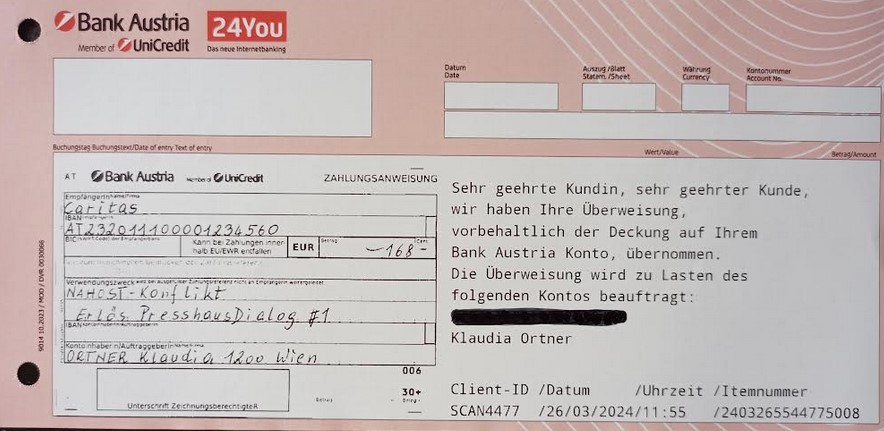 Bank Austria
Member of UniCredit
24You
Das neue Internetbanking
Datum
Date
Auszug /Blatt
Statem. /Sheet
Währung
Currency
Kontonummer
Account No.
Buchungstag Buchungstext/Date of entry Text of entry
Wert/Value
Betrag/Amount
AT Bank Austria Member of UniCredit ZAHLUNGSANWEISUNG
EmpfängerIn Name/Firma
Caritas
IBAN EmpfängerIn
AT232011100001234560
BIC
Kann bei Zahlungen inner-
halb EU/EWR entfallen
EUR
Betrag
Cent
—168—
Verwendungszweck
NAHOST-Konflikt
Erlös PresshausDialog #1
IBAN KontoinhaberIn/AuftraggeberIn
KontoinhaberIn/AuftraggeberIn Name/Firma
ORTNER Klaudia 1200 Wien
006
30+
Unterschrift ZeichnungsberechtigteR
Betrag
9014 10.2023 / MOD / DVR 0030066
Sehr geehrte Kundin, sehr geehrter Kunde,
wir haben Ihre Überweisung,
vorbehaltlich der Deckung auf Ihrem
Bank Austria Konto, übernommen.
Die Überweisung wird zu Lasten des
folgenden Kontos beauftragt:
Klaudia Ortner
Client-ID /Datum /Uhrzeit /Itemnummer
SCAN4477 /26/03/2024/11:55 /2403265544775008